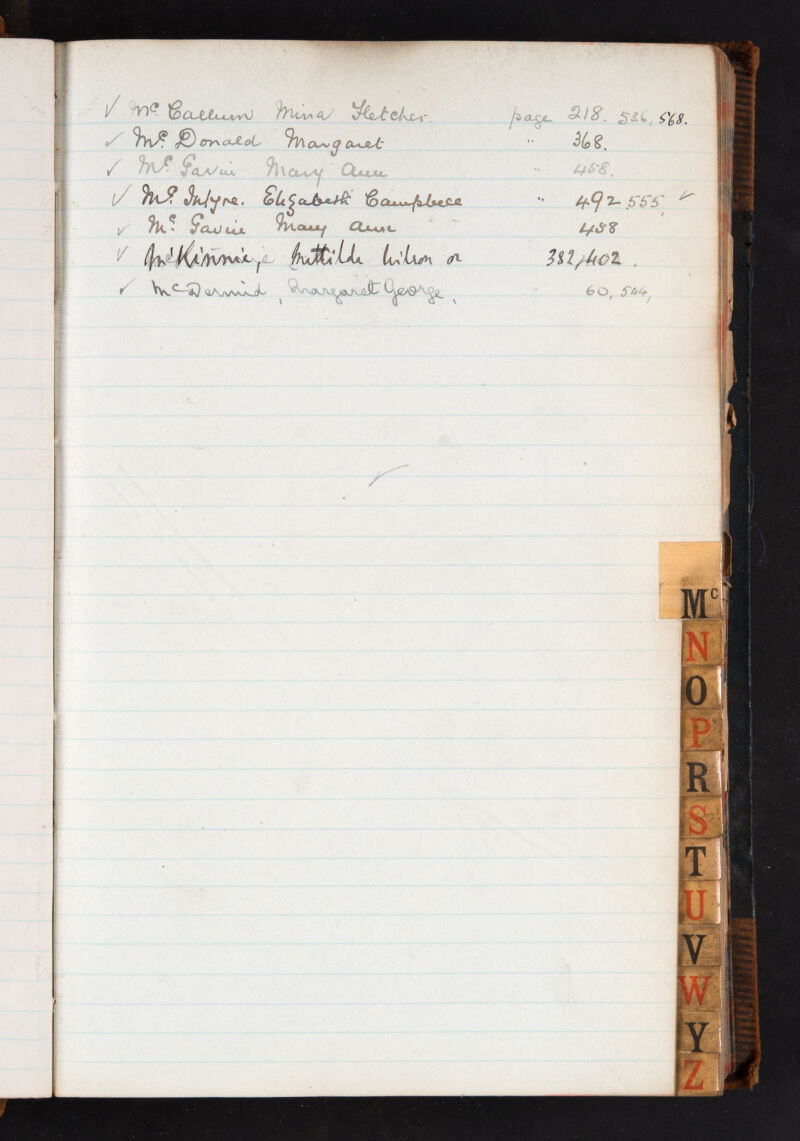 ✓ Mc. Callum Mina Fletcher. page 218. 536, 568.
✓ Mc. Donald Margaret " 368.
✓ Mc. Gavin Mary Ann " 458.
✓ Mc. Intyre. Elizabeth Campbell " 492 555, ✓
✓ Mc. Gavin Mary Ann 458
✓ McKinnie, Wilson or 382, 402.
✓ McDermid, Margaret George, 60, 544,
✓
Mc
N
O
P
R
S
T
U
V
W
Y
Z